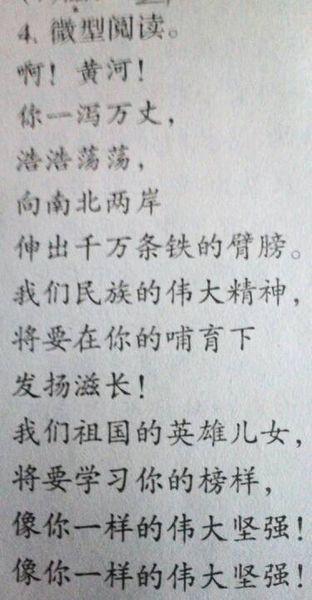 4. 微型阅读。
啊！黄河！
你一泻万丈，
浩浩荡荡，
向南北两岸
伸出千万条铁的臂膀。
我们民族的伟大精神，
将要在你的哺育下
发扬滋长！
我们祖国的英雄儿女，
将要学习你的榜样，
像你一样的伟大坚强！
像你一样的伟大坚强！